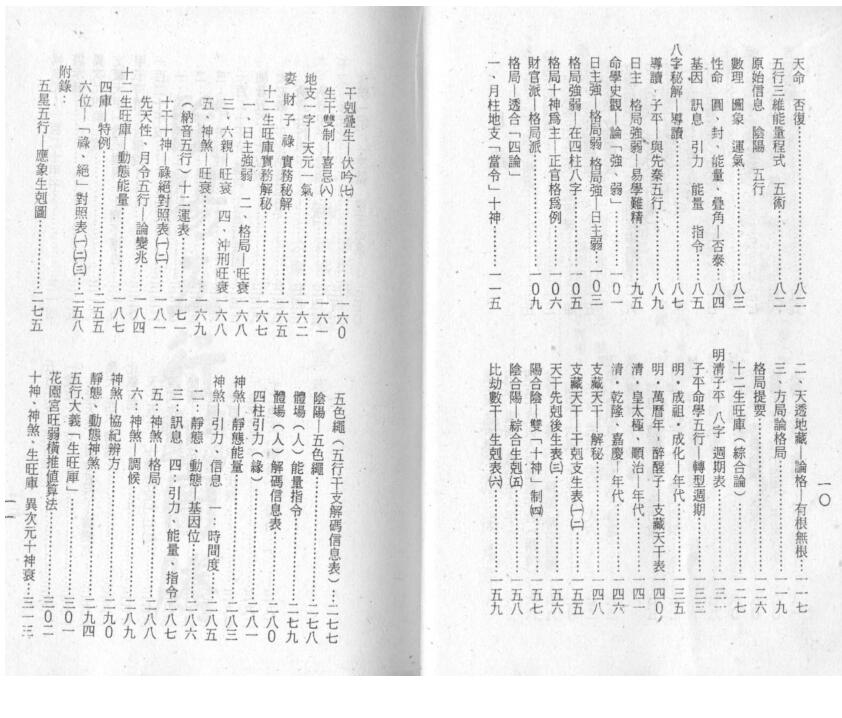 天命 否復……八二
五行三維能量程式 五術……八二
原始信息 陰陽 五行
數理 圖象 運氣……八三
性命 圓、封、能量、疊角—否泰……八四
基因 訊息 引力 能量 指令……八五
八字秘解—導讀……八七
導讀·子平—與先秦五行……八九
日主 格局強弱—易學難精……九五
命學史觀—論「強、弱」……一〇一
日主強—格局弱 格局強—日主弱…一〇三
格局強弱—在四柱八字……一〇五
格局十神爲主—正官格爲例……一〇六
財官派—格局派……一〇九
格局—透合「四論」
一、月柱地支「當令」十神……一一五
二、天透地藏—論格—有根無根……一一七
三、方局論格局……一一九
格局提要……一二六
十二生旺庫（綜合論）……一二七
明清子平 八字 週期表……一三一
子平命學五行—轉型週期……一三三
明·成祖·成化—年代……一三五
明·萬曆年·醉醒子—支藏天干表…一四〇
清·皇太極、順治—年代……一四一
清·乾隆、嘉慶—年代……一四六
支藏天干—解秘……一四八
支藏天干—干剋支生表㈠㈡……一五五
天干先剋後生表㈢……一五六
陽合陰—雙「十神」制㈣……一五七
陰合陽—綜合生剋㈤……一五八
比劫數干—生剋表㈥……一五九
一〇
干剋疊生—伏吟㈦……一六〇
生干雙制—喜忌㈧……一六一
地支一字—天元一氣……一六二
妻 財 子 祿 實務秘解……一六五
十二生旺庫實務解秘……一六七
一、日主強弱 二、格局—旺衰…一六八
三、六親—旺衰 四、沖刑旺衰…一六八
五、神煞—旺衰……一六九
（納音五行）十二運表……一七一
十干十神—祿絕對照表㈠㈡……一八一
先天性、月令五行—論變兆……一八四
十二生旺庫—動態能量……一八七
四庫—特例……二五五
六位—「祿、絕」對照表㈠㈡㈢…二五八
附錄：
五星五行 應象生剋圖……二七五
五色繩（五行干支解碼信息表）…二七七
陰陽—五色繩……二七八
體場（人）能量指令……二七九
體場（人）解碼信息表……二八〇
四柱引力（緣）……二八一
神煞—靜態能量……二八三
神煞—引力、信息 一：時間度……二八五
二：靜態、動態—基因位……二八六
三：訊息 四：引力、能量、指令 二八七
五：神煞—格局……二八八
六：神煞—調候……二八九
神煞—協紀辨方……二九〇
靜態、動態神煞……二九四
五行大義「生旺庫」……三〇一
花園宮旺弱橫推值算法……三〇二
十神、神煞、生旺庫 異次元十神衰…三一三
一一